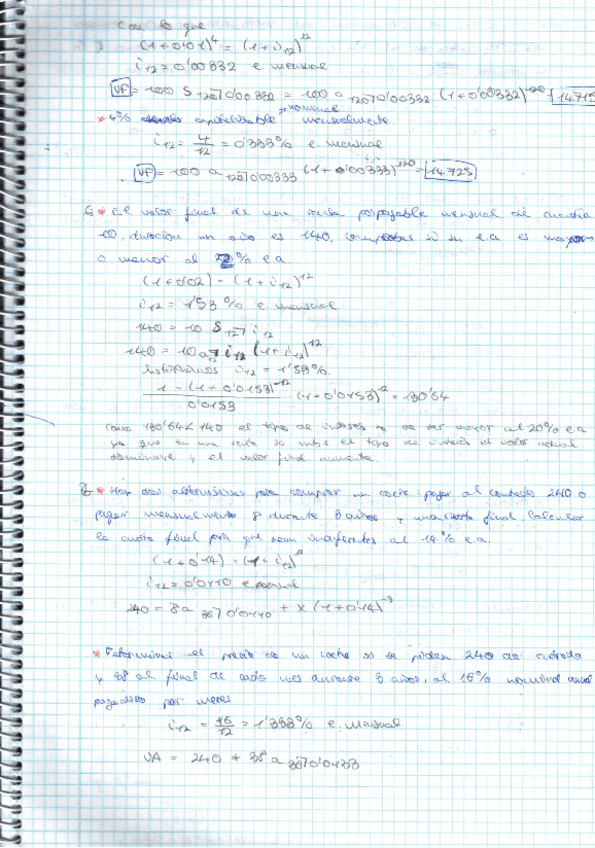 Con lo que
(1+0'01)⁴ = (1+i₁₂)¹²
i₁₂ = 0'00332 e mensual
VF = 100 S 120⌉0'00332 = 100 a 120⌉0'00332 (1+0'00332)¹²⁰ 14.715
* 4% nominal capitalizable mensualmente.
i₁₂ = 4/12 = 0'333% e mensual
VF = 100 a 120⌉0'00333 (1+0'00333)¹²⁰ = 14.725
* El valor final de una renta pospagable mensual de cuantía
10, duración un año es 140. Comprobar si su e.a es mayor
o menor al % e a
(1+0'02) = (1+i₁₂)¹²
i₁₂ = 1'53% e mensual
140 = 10 S 12⌉ i₁₂
140 = 10 a 12⌉ i₁₂ (1+i₁₂)¹²
i₁₂ = 1'53%
1-(1+0'0153)⁻¹² / 0'0153 · (1+0'0153)¹² = 130'64
Como 130'64 < 140 el tipo de interés ha de ser mayor al 20% e.a
ya que en una renta si sube el tipo de interés el valor actual
disminuye y el valor final aumenta
* Hay dos alternativas para comprar un coche: pagar al contado 240 o
pagar mensualmente 8 durante 3 años y una cuota final. Calcular
la cuota final para que sean indiferentes al 14% e.a.
(1+0'14) = (1+i₁₂)¹²
i₁₂ = 0'0110 e mensual
240 = 8 a 36⌉0'0110 + X (1+0'14)⁻³
* Determinar el precio de un coche si se piden 240 de entrada
y 38 al final de cada mes durante 3 años, al 16% nominal anual
pagadero por meses
i₁₂ = 16/12 = 1'333% e. mensual
VA = 240 + 38 a 36⌉0'0133